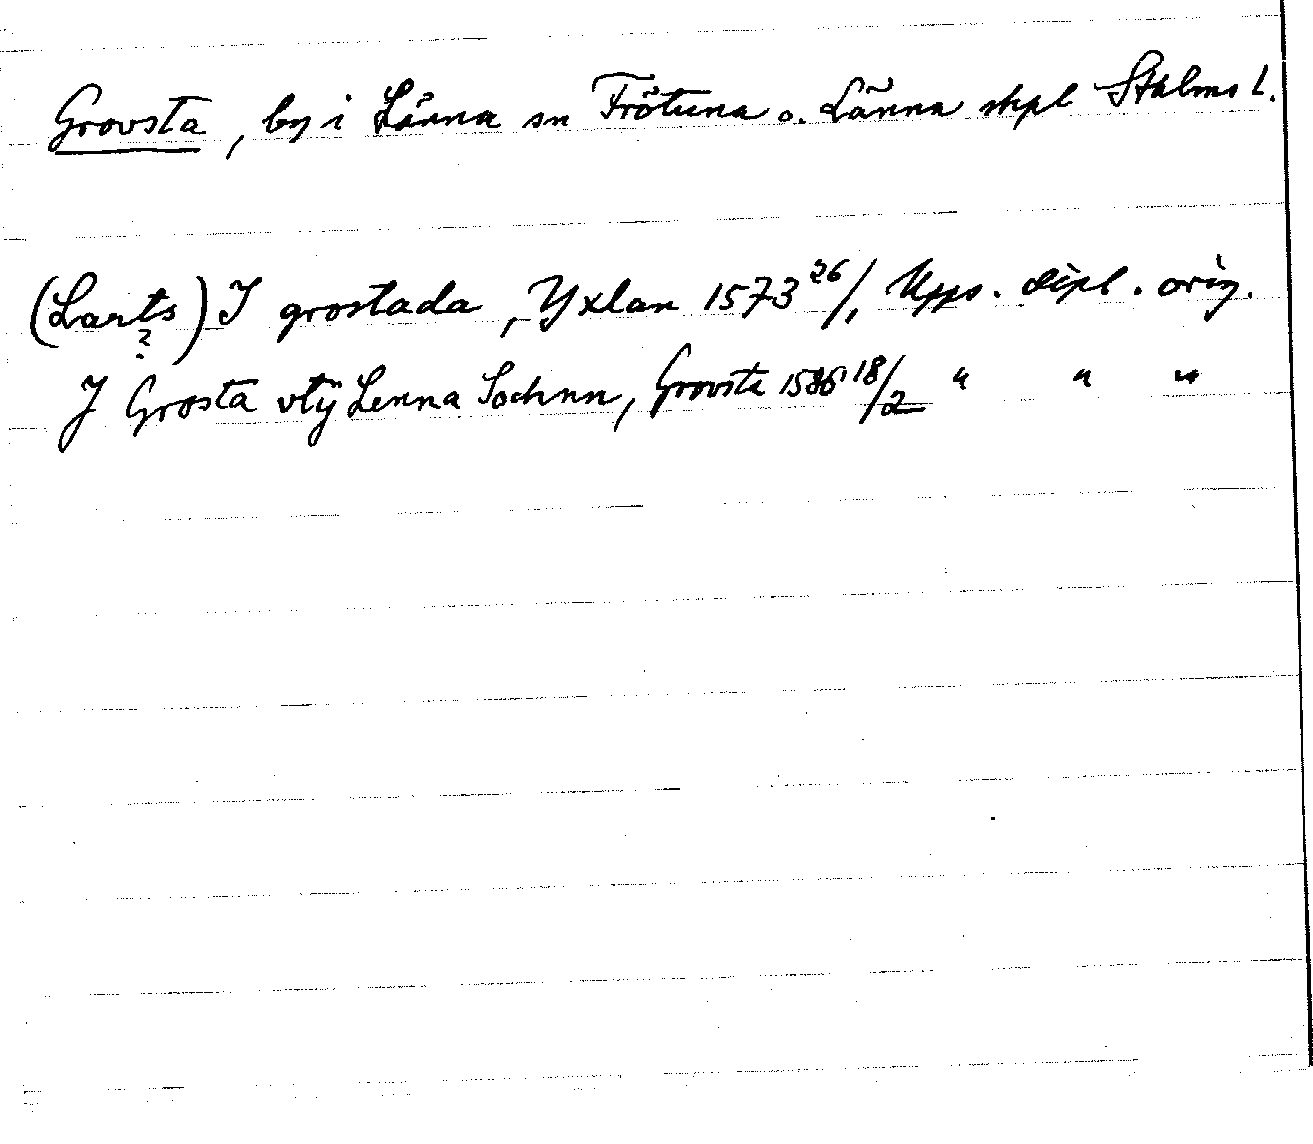 Grovsta, by i Länna sn Frötuna o. Länna skpl Sthlms l.
(Larits) J grostada, Yxlan 1573 26/1, Upps. dipl. orig.
?
J Grosta vtÿ Lenna Sochnn, Grovsta 1586 18/2 " " "